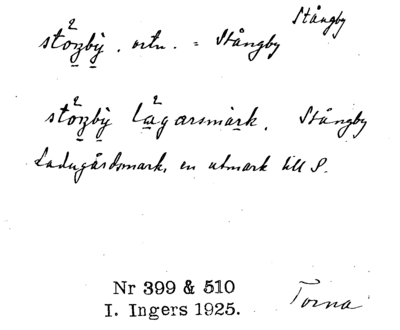 Stångby
stoŋby, ortn. = Stångby
stoŋby lagarsmark. Stångby
Ladugårdsmark, en utmark till S.
Nr 399 & 510
I. Ingers 1925. Torna